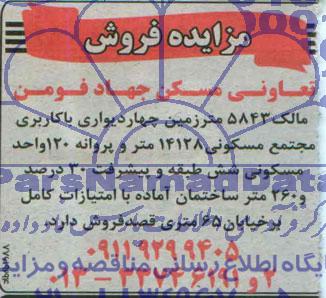 مزایده فروش
تعاونی مسکن جهاد فومن
مالک ۵۸۴۳ مترزمین چهاردیواری باکاربری
مجتمع مسکونی ۱۴۱۲۸ متر و پروانه ۱۲۰واحد
مسکونی شش طبقه و پیشرفت ۳۰ درصد
و۲۶۰ متر ساختمان آماده با امتیازات کامل
برخیابان ۶۵متری قصدفروش دارد.
۰۹۱۱۹۲۹۹۴۰۵
ParsNamadData
پایگاه اطلاع رسانی مناقصه و مزایده